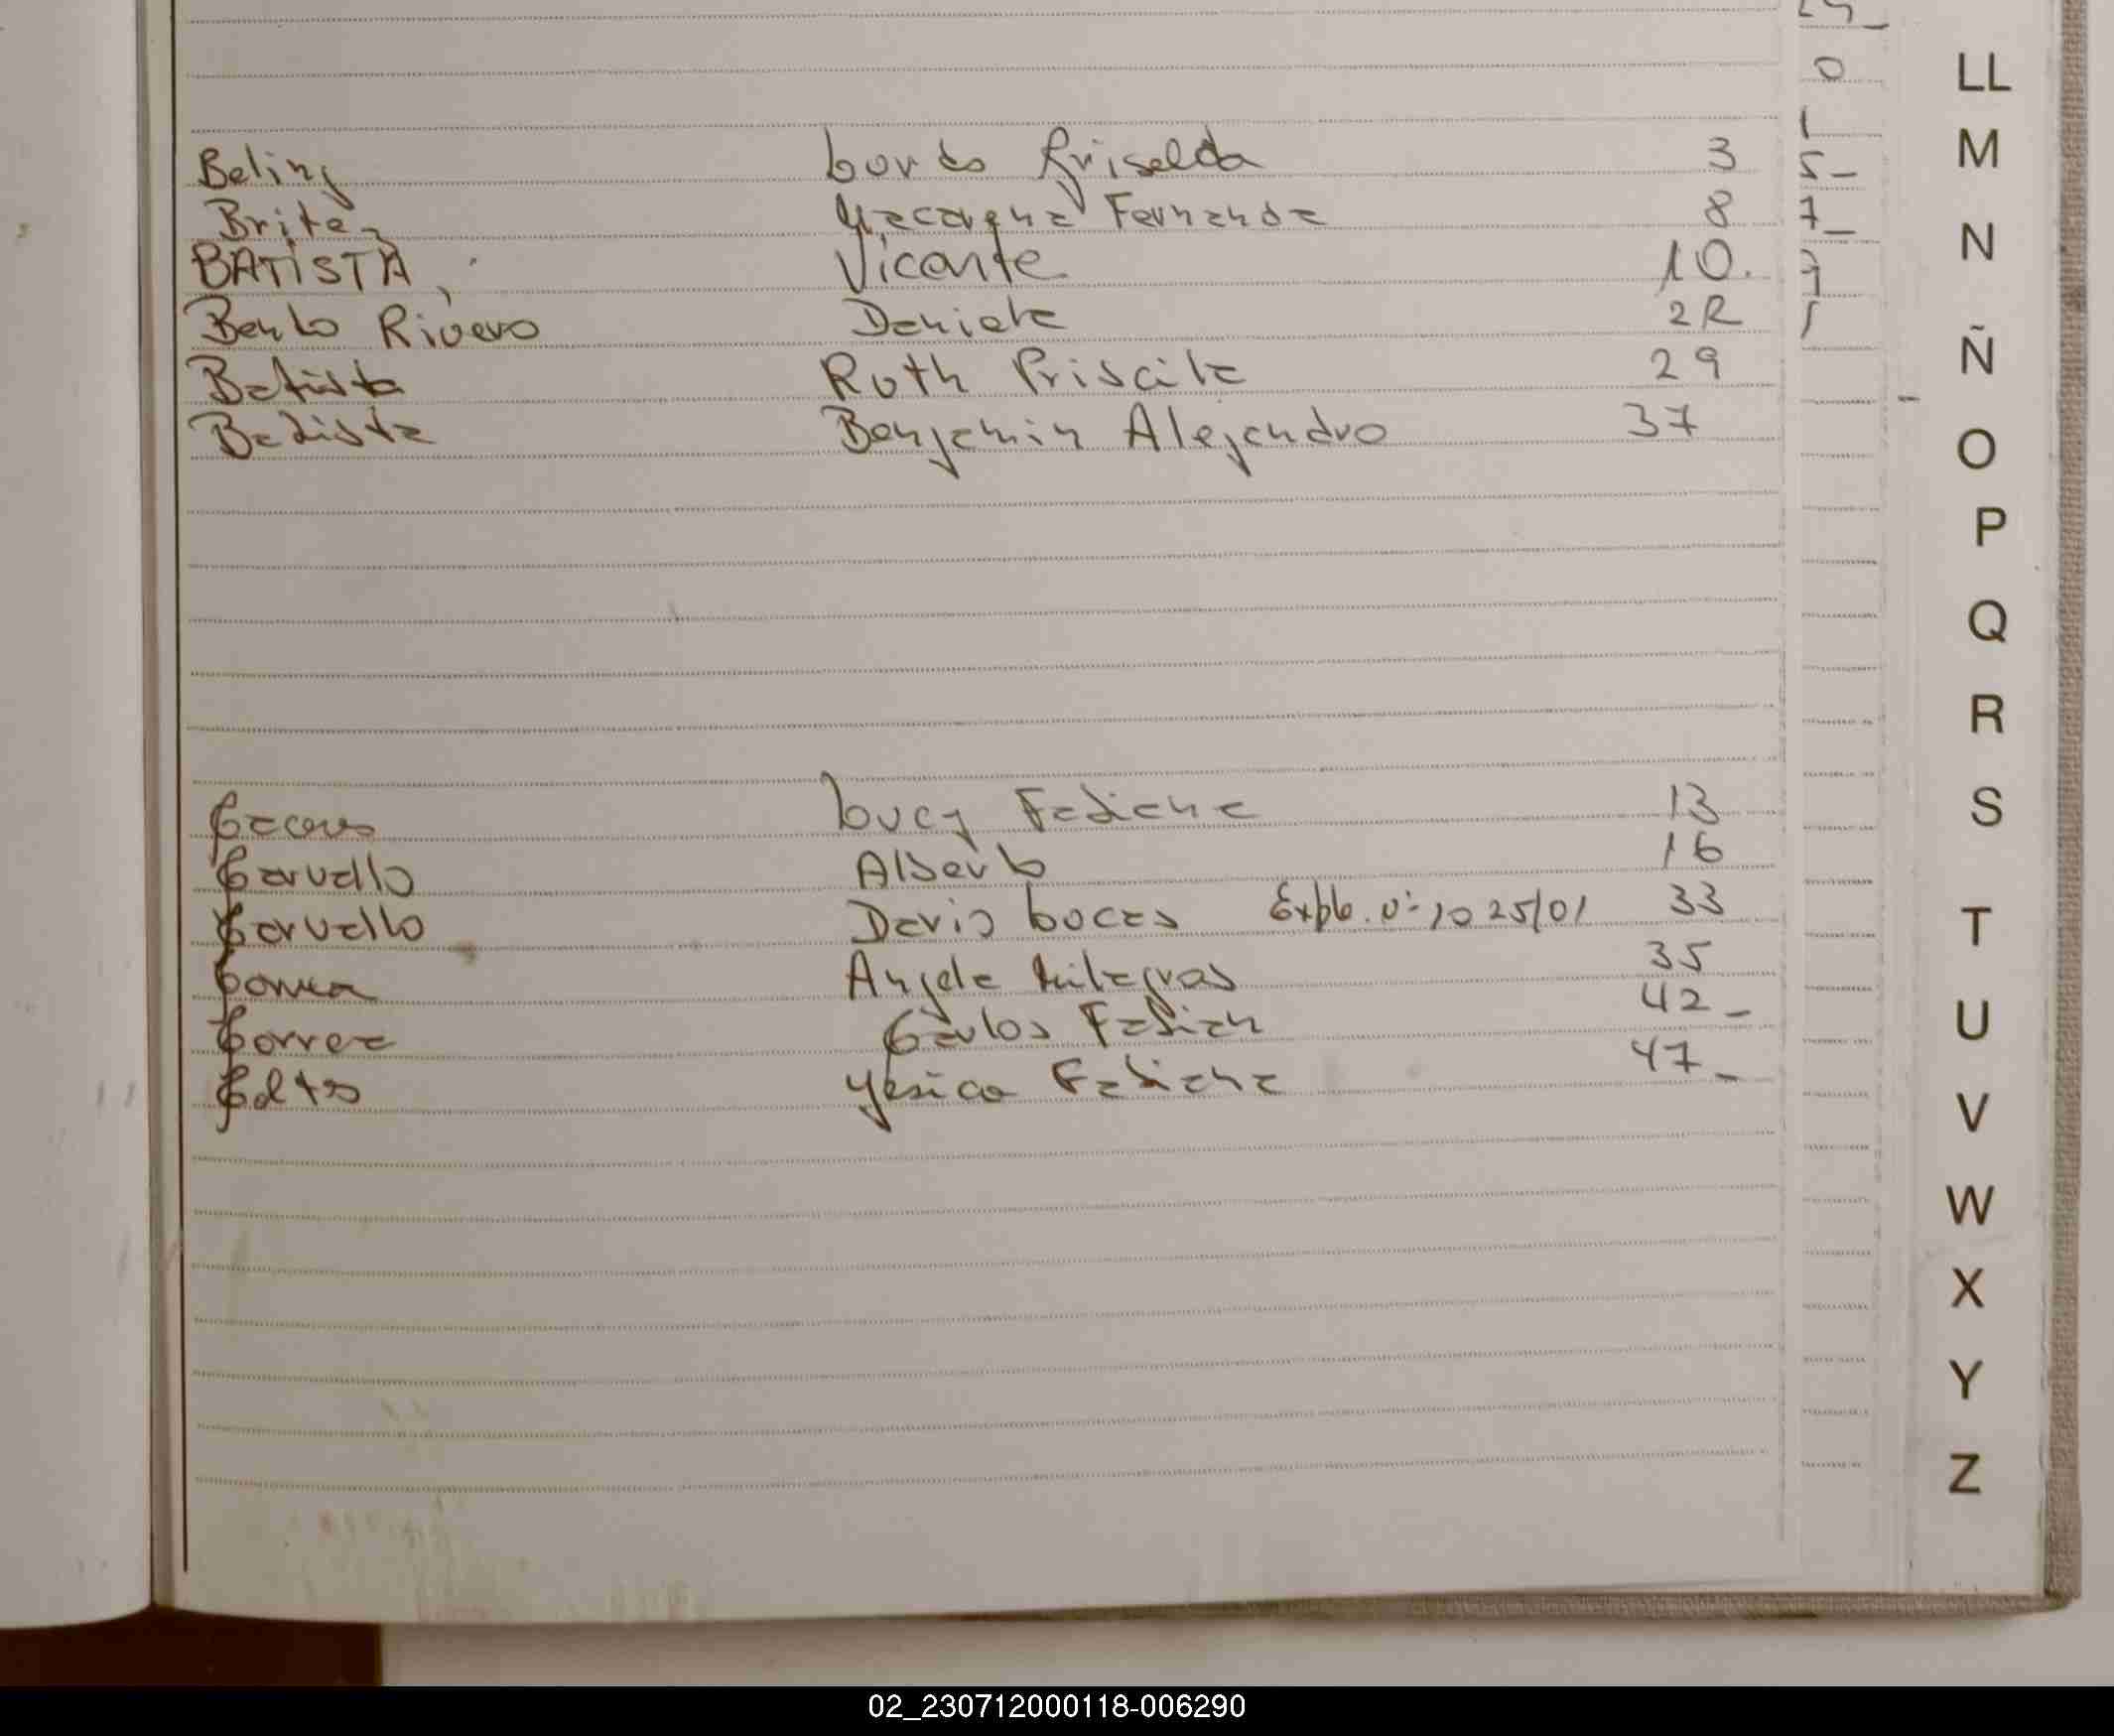 Beling Lordo Griselda 3
Britez Macarena Fernanda 8
BATISTA, Vicente 10.
Bento Rivero Daniela 2R
Batista Ruth Priscila 29
Batista Benjamin Alejandro 37
Lucy Fabiana 13
Carvallo Alberto 16
Carvallo David Lucas 33
Correa Angela Milagros 35
Correa Carlos Fabian 42_
Yesica Fabiana 47_
0
1
5_
7_
LL
M
N
Ñ
O
P
Q
R
S
T
U
V
W
X
Y
Z
02_230712000118-006290